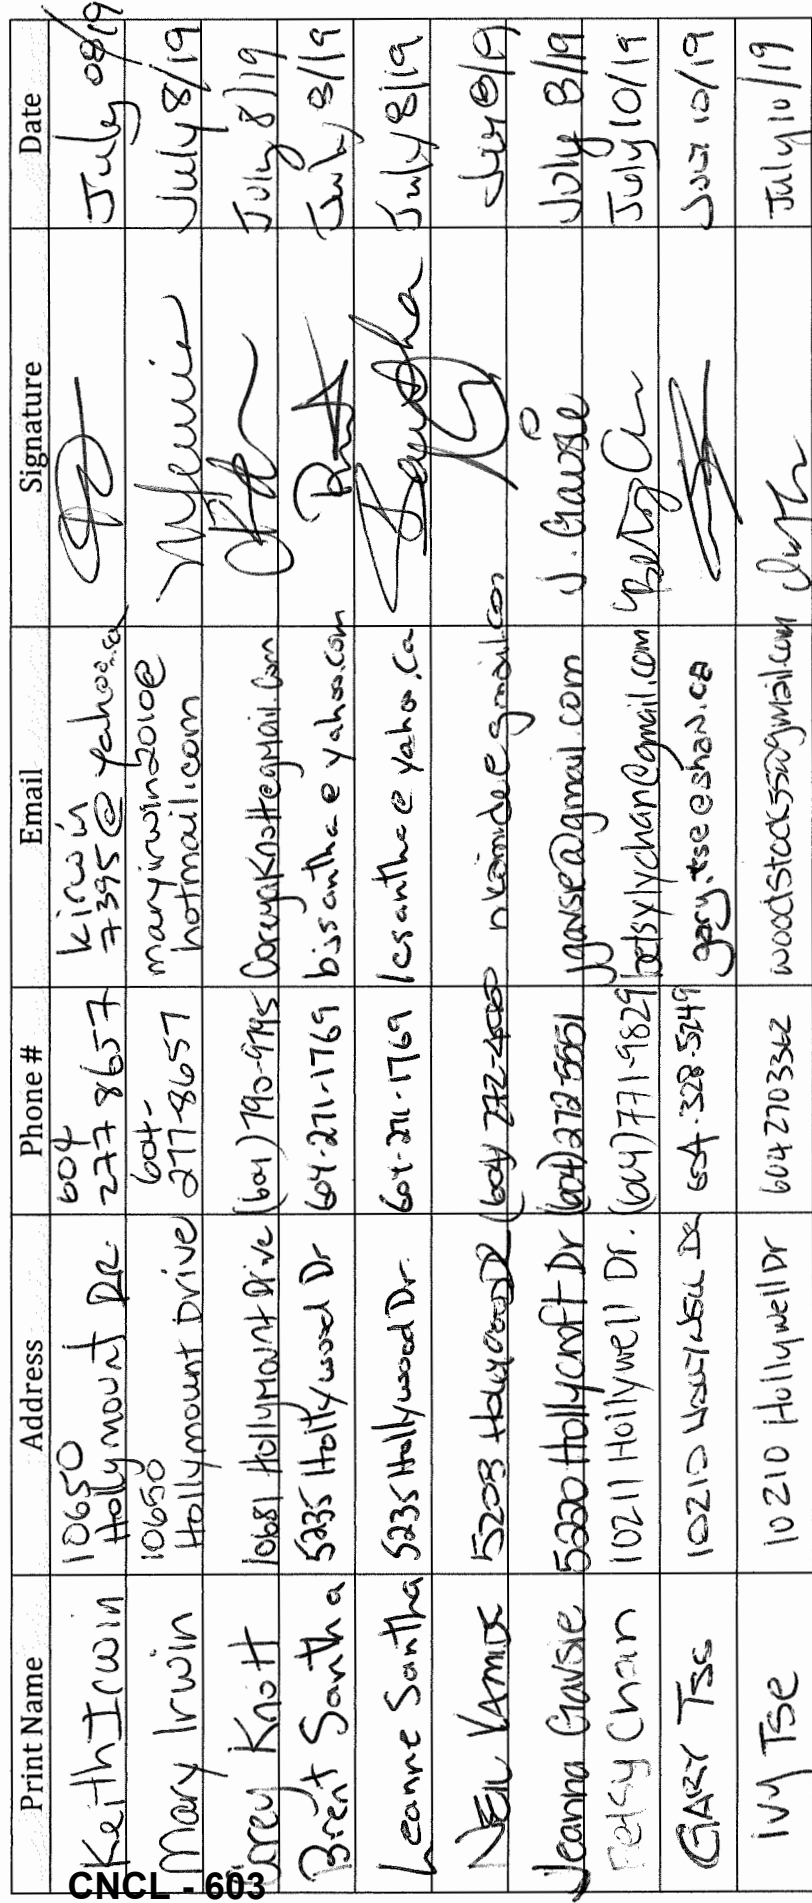 Print Name Address Phone # Email Signature Date
Keith Irwin 10650 Hollymount DR. 604 277 8657 kirwin 7395@yahoo.ca July 08/19
Mary Irwin 10650 Hollymount Drive 604-277-8657 maryirwin2010@hotmail.com July 8/19
Corey Knott 10681 Hollymount Drive (604) 790-9795 CoreyaKnott@gmail.com July 8/19
Brent Santha 5235 Hollywood Dr 604-271-1769 bjsantha@yahoo.com July 8/19
Leanne Santha 5235 Hollywood Dr. 604-271-1769 lcsantha@yahoo.ca Santha July 8/19
NEIL KAMIDE 5203 Hollywood DR (604) nkamide@gmail.com July 8/19
Jeanna Gavsie 5220 Hollycroft Dr (604)272-5551 jgavsie@gmail.com J. Gavsie July 8/19
Betsy Chan 10211 Hollywell Dr. (604)771-9829 betsylychan@gmail.com Betsy Ch July 10/19
GARY TSE 10210 HOLLYWELL DR 604-328-5249 gary.tse@shaw.ca July 10/19
IVY TSe 10210 Hollywell Dr 6042703362 woodstock55@gmail.com July 10/19
CNCL - 603